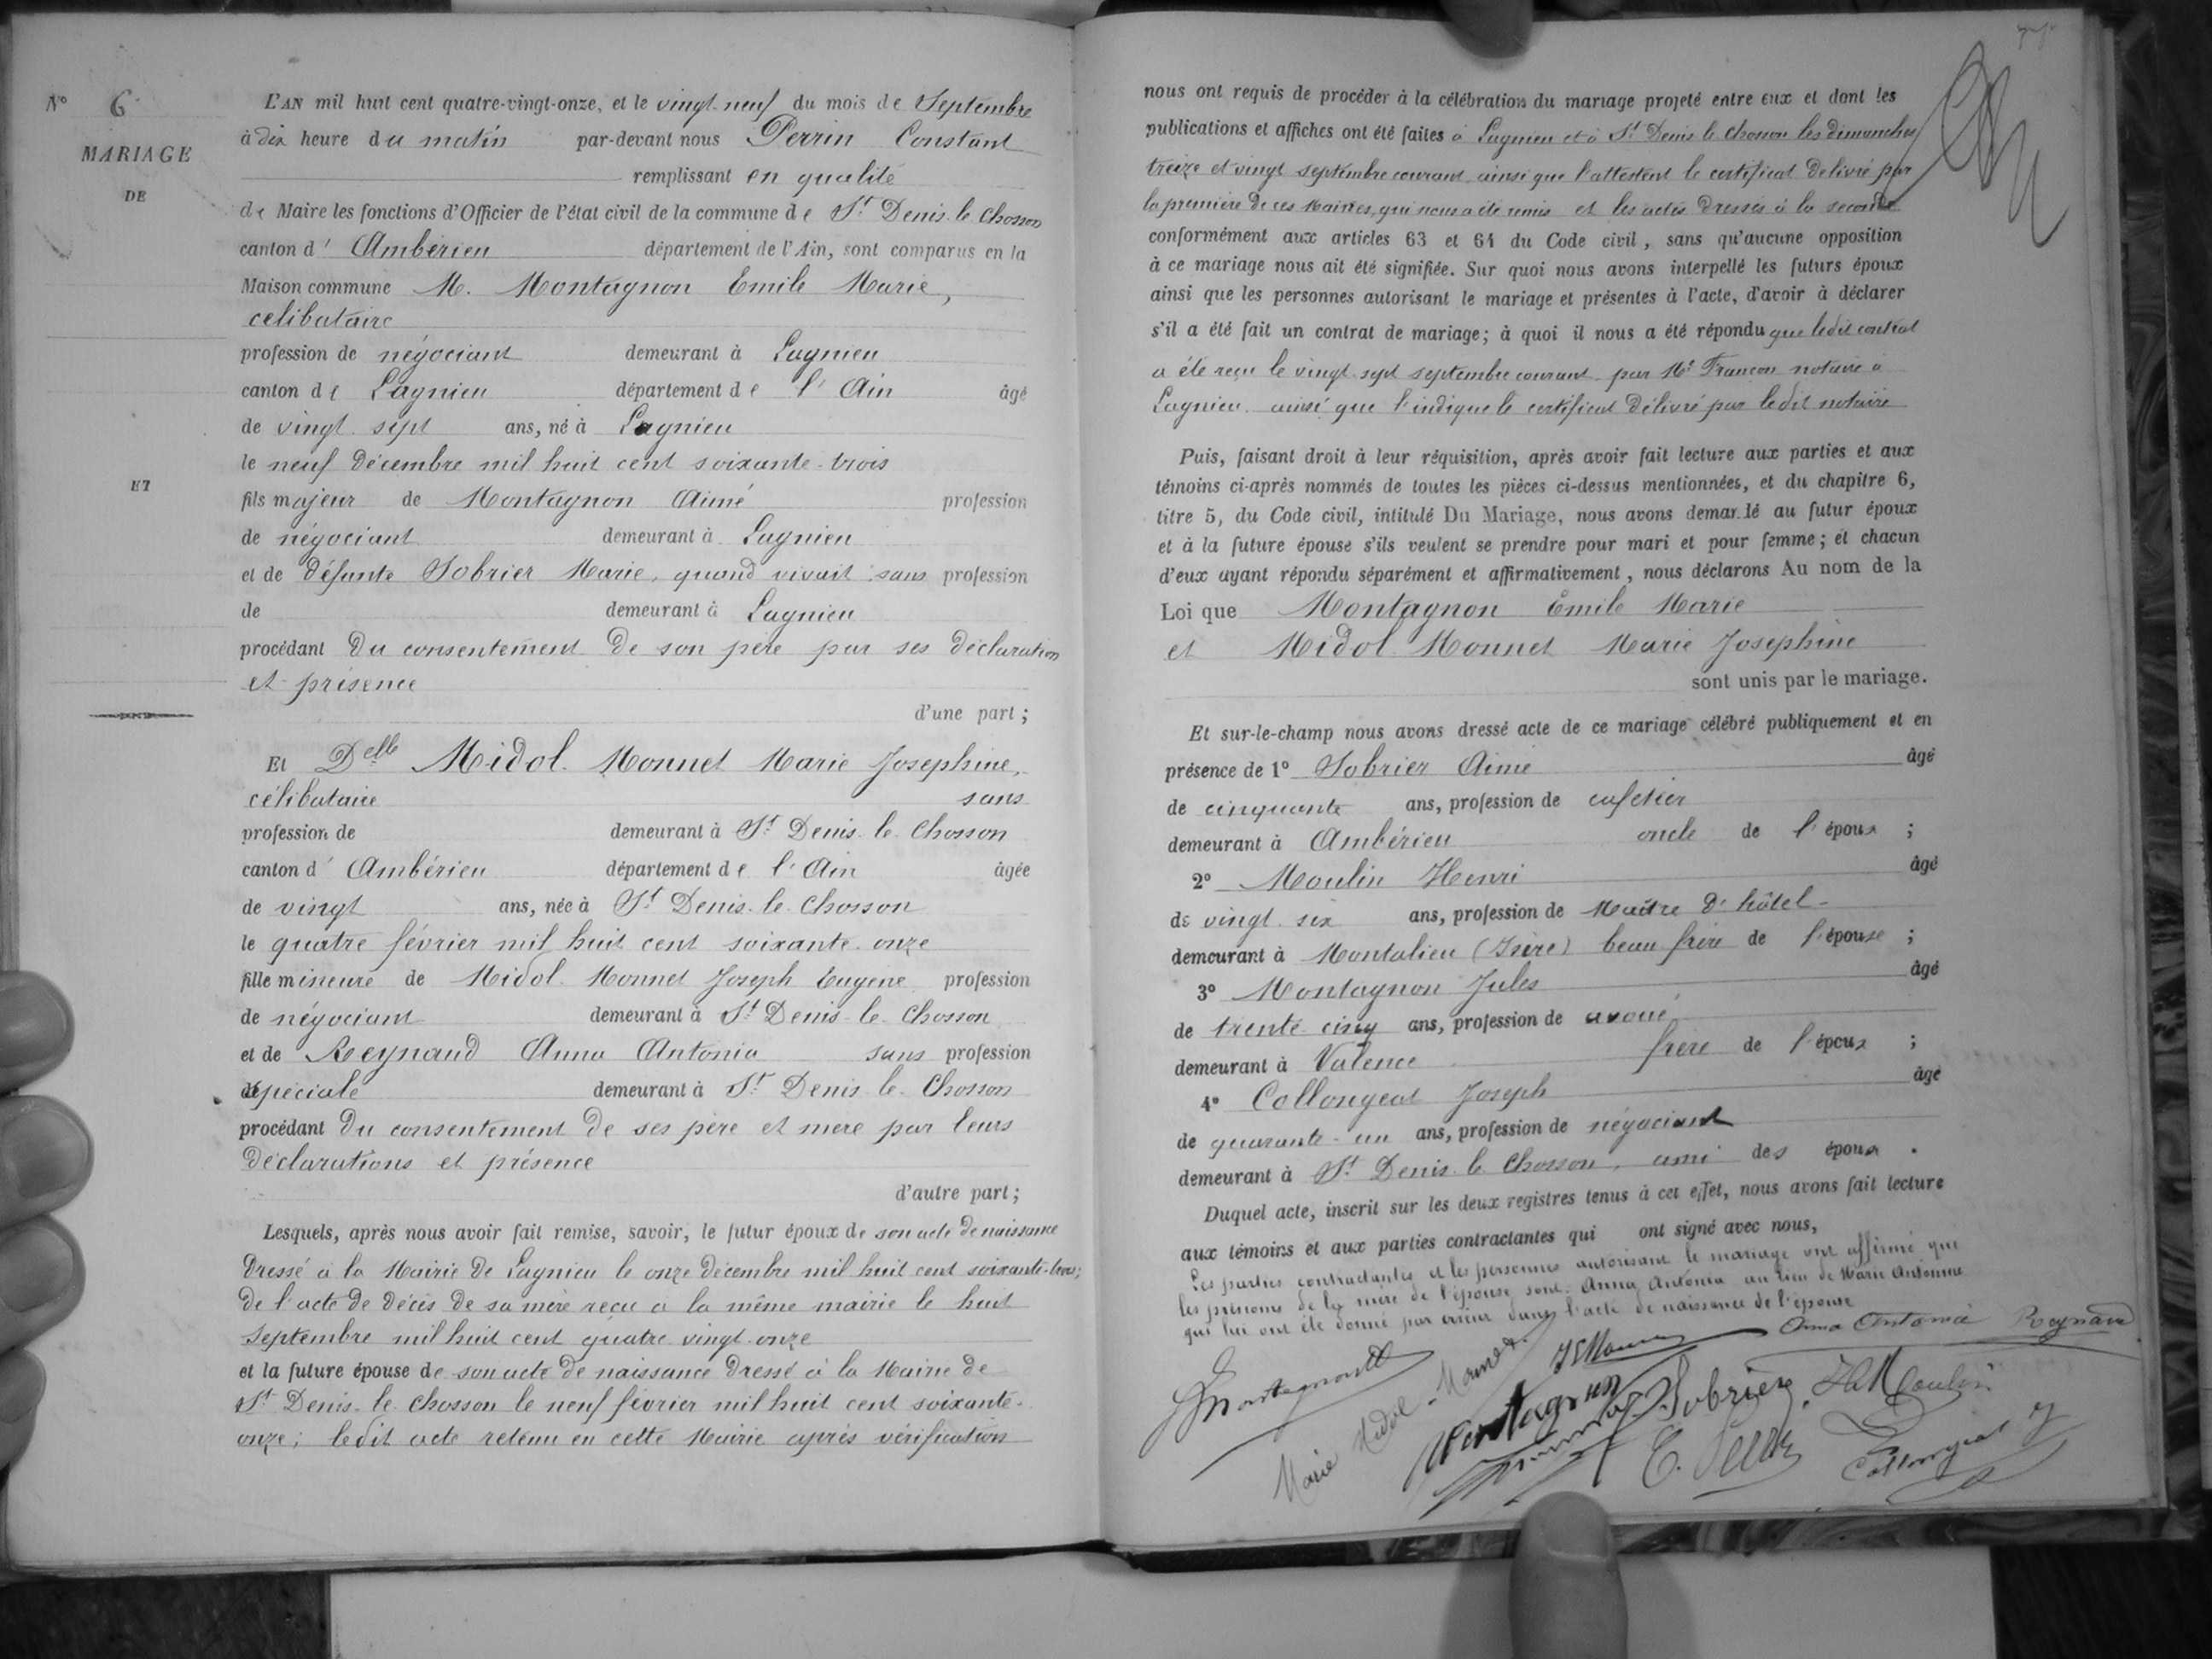 N° 6
MARIAGE
DE
ET
L'AN mil huit cent quatre-vingt-onze, et le vingt-neuf du mois de Septembre
à dix heure du matin par-devant nous Perrin Constant
remplissant en qualité
de Maire les fonctions d'Officier de l'état civil de la commune de St Denis-le-Chosson
canton d' Ambérieu département de l'Ain, sont comparus en la
Maison commune M. Montagnon Emile Marie,
celibataire
profession de négociant demeurant à Lagnieu
canton de Lagnieu département de l'Ain âgé
de vingt-sept ans, né à Lagnieu
le neuf décembre mil huit cent soixante-trois
fils majeur de Montagnon Aimé profession
de négociant demeurant à Lagnieu
et de défunte Sobrier Marie, quand vivait sans profession
de demeurant à Lagnieu
procédant du consentement de son père par ses déclaration
et présence
d'une part;
Et Delle Midol-Monnet Marie Josephine,
célibataire sans
profession de demeurant à St Denis-le-Chosson
canton d' Ambérieu département de l'Ain âgée
de vingt ans, née à St Denis-le-Chosson
le quatre février mil huit cent soixante-onze
fille mineure de Midol-Monnet Joseph Eugène profession
de négociant demeurant à St Denis-le-Chosson
et de Reynaud Anna Antonia sans profession
spéciale demeurant à St Denis-le-Chosson
procédant du consentement de ses père et mère par leurs
déclarations et présence
d'autre part;
Lesquels, après nous avoir fait remise, savoir, le futur époux de son acte de naissance
dressé à la Mairie de Lagnieu le onze décembre mil huit cent soixante-trois;
de l'acte de décès de sa mère reçu à la même mairie le huit
septembre mil huit cent quatre vingt-onze
et la future épouse de son acte de naissance dressé à la Mairie de
St Denis-le-Chosson le neuf février mil huit cent soixante-
onze; ledit acte retenu en cette Mairie après vérification
nous ont requis de procéder à la célébration du mariage projeté entre eux et dont les
publications et affiches ont été faites à Lagnieu et à St Denis-le-Chosson les dimanches
treize et vingt septembre courant ainsi que l'attestent le certificat délivré par
la première de ces Mairies, qui nous a été remis et les actes dressés à la seconde
conformément aux articles 63 et 64 du Code civil, sans qu'aucune opposition
à ce mariage nous ait été signifiée. Sur quoi nous avons interpellé les futurs époux
ainsi que les personnes autorisant le mariage et présentes à l'acte, d'avoir à déclarer
s'il a été fait un contrat de mariage; à quoi il nous a été répondu que ledit contrat
a été reçu le vingt-sept septembre courant par Me Francon notaire à
Lagnieu ainsi que l'indique le certificat délivré par ledit notaire
Puis, faisant droit à leur réquisition, après avoir fait lecture aux parties et aux
témoins ci-après nommés de toutes les pièces ci-dessus mentionnées, et du chapitre 6,
titre 5, du Code civil, intitulé Du Mariage, nous avons demandé au futur époux
et à la future épouse s'ils veulent se prendre pour mari et pour femme; et chacun
d'eux ayant répondu séparément et affirmativement, nous déclarons Au nom de la
Loi que Montagnon Emile Marie
et Midol-Monnet Marie Josephine
sont unis par le mariage.
Et sur-le-champ nous avons dressé acte de ce mariage célébré publiquement et en
présence de 1° Sobrier Aimé âgé
de cinquante ans, profession de cafetier
demeurant à Ambérieu oncle de l'époux;
2° Moulin Henri âgé
de vingt-six ans, profession de Maître d'hôtel
demeurant à Montalieu (Isère) beau frère de l'épouse;
3° Montagnon Jules âgé
de trente-cinq ans, profession de avoué
demeurant à Valence frère de l'époux;
4° Collongeat Joseph âgé
de quarante-un ans, profession de négociant
demeurant à St Denis-le-Chosson, ami des époux.
Duquel acte, inscrit sur les deux registres tenus à cet effet, nous avons fait lecture
aux témoins et aux parties contractantes qui ont signé avec nous,
Les parties contractantes et les personnes autorisant le mariage ont affirmé que
les prénoms de la mère de l'épouse sont Anna Antonia au lieu de Marie Antoinne
qui lui ont été donné par erreur dans l'acte de naissance de l'épouse
Anna Antonia Reynaud
Montagnon
Marie Midol-Monnet
Montagnon
Sobrier
H. Moulin
C. Perrin
Collongeat J